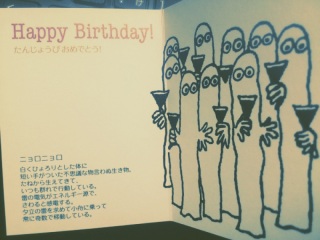 Happy Birthday!
たんじょうび おめでとう!
ニョロニョロ
白くひょろりとした体に
短い手がついた不思議な物言わぬ生き物。
たねから生えてきて、
いつも群れで行動している。
雷の電気がエネルギー源で、
さわると感電する。
夕立の雷を求めて小舟に乗って
常に母群で移動している。